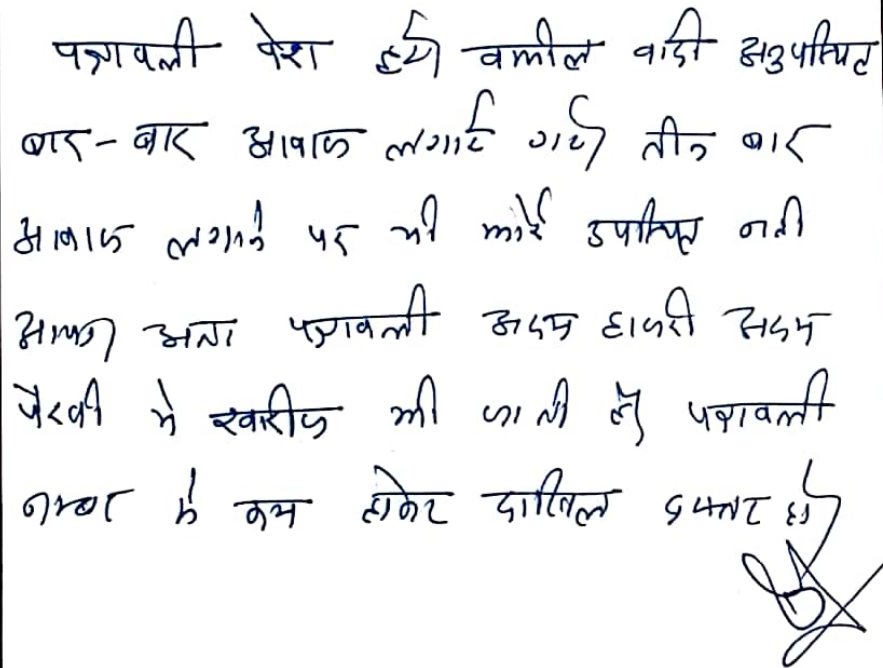 पत्रावली पेश हुयी वकील वादी अनुपस्थित
बार-बार आवाज लगाई गई तीन बार
आवाज लगाने पर भी कोई उपस्थित नही
आया अतः पत्रावली अदम हाजरी अदम
पैरवी मे खारीज की जाती है पत्रावली
नम्बर से कम होकर दाखिल दफ्तर हो